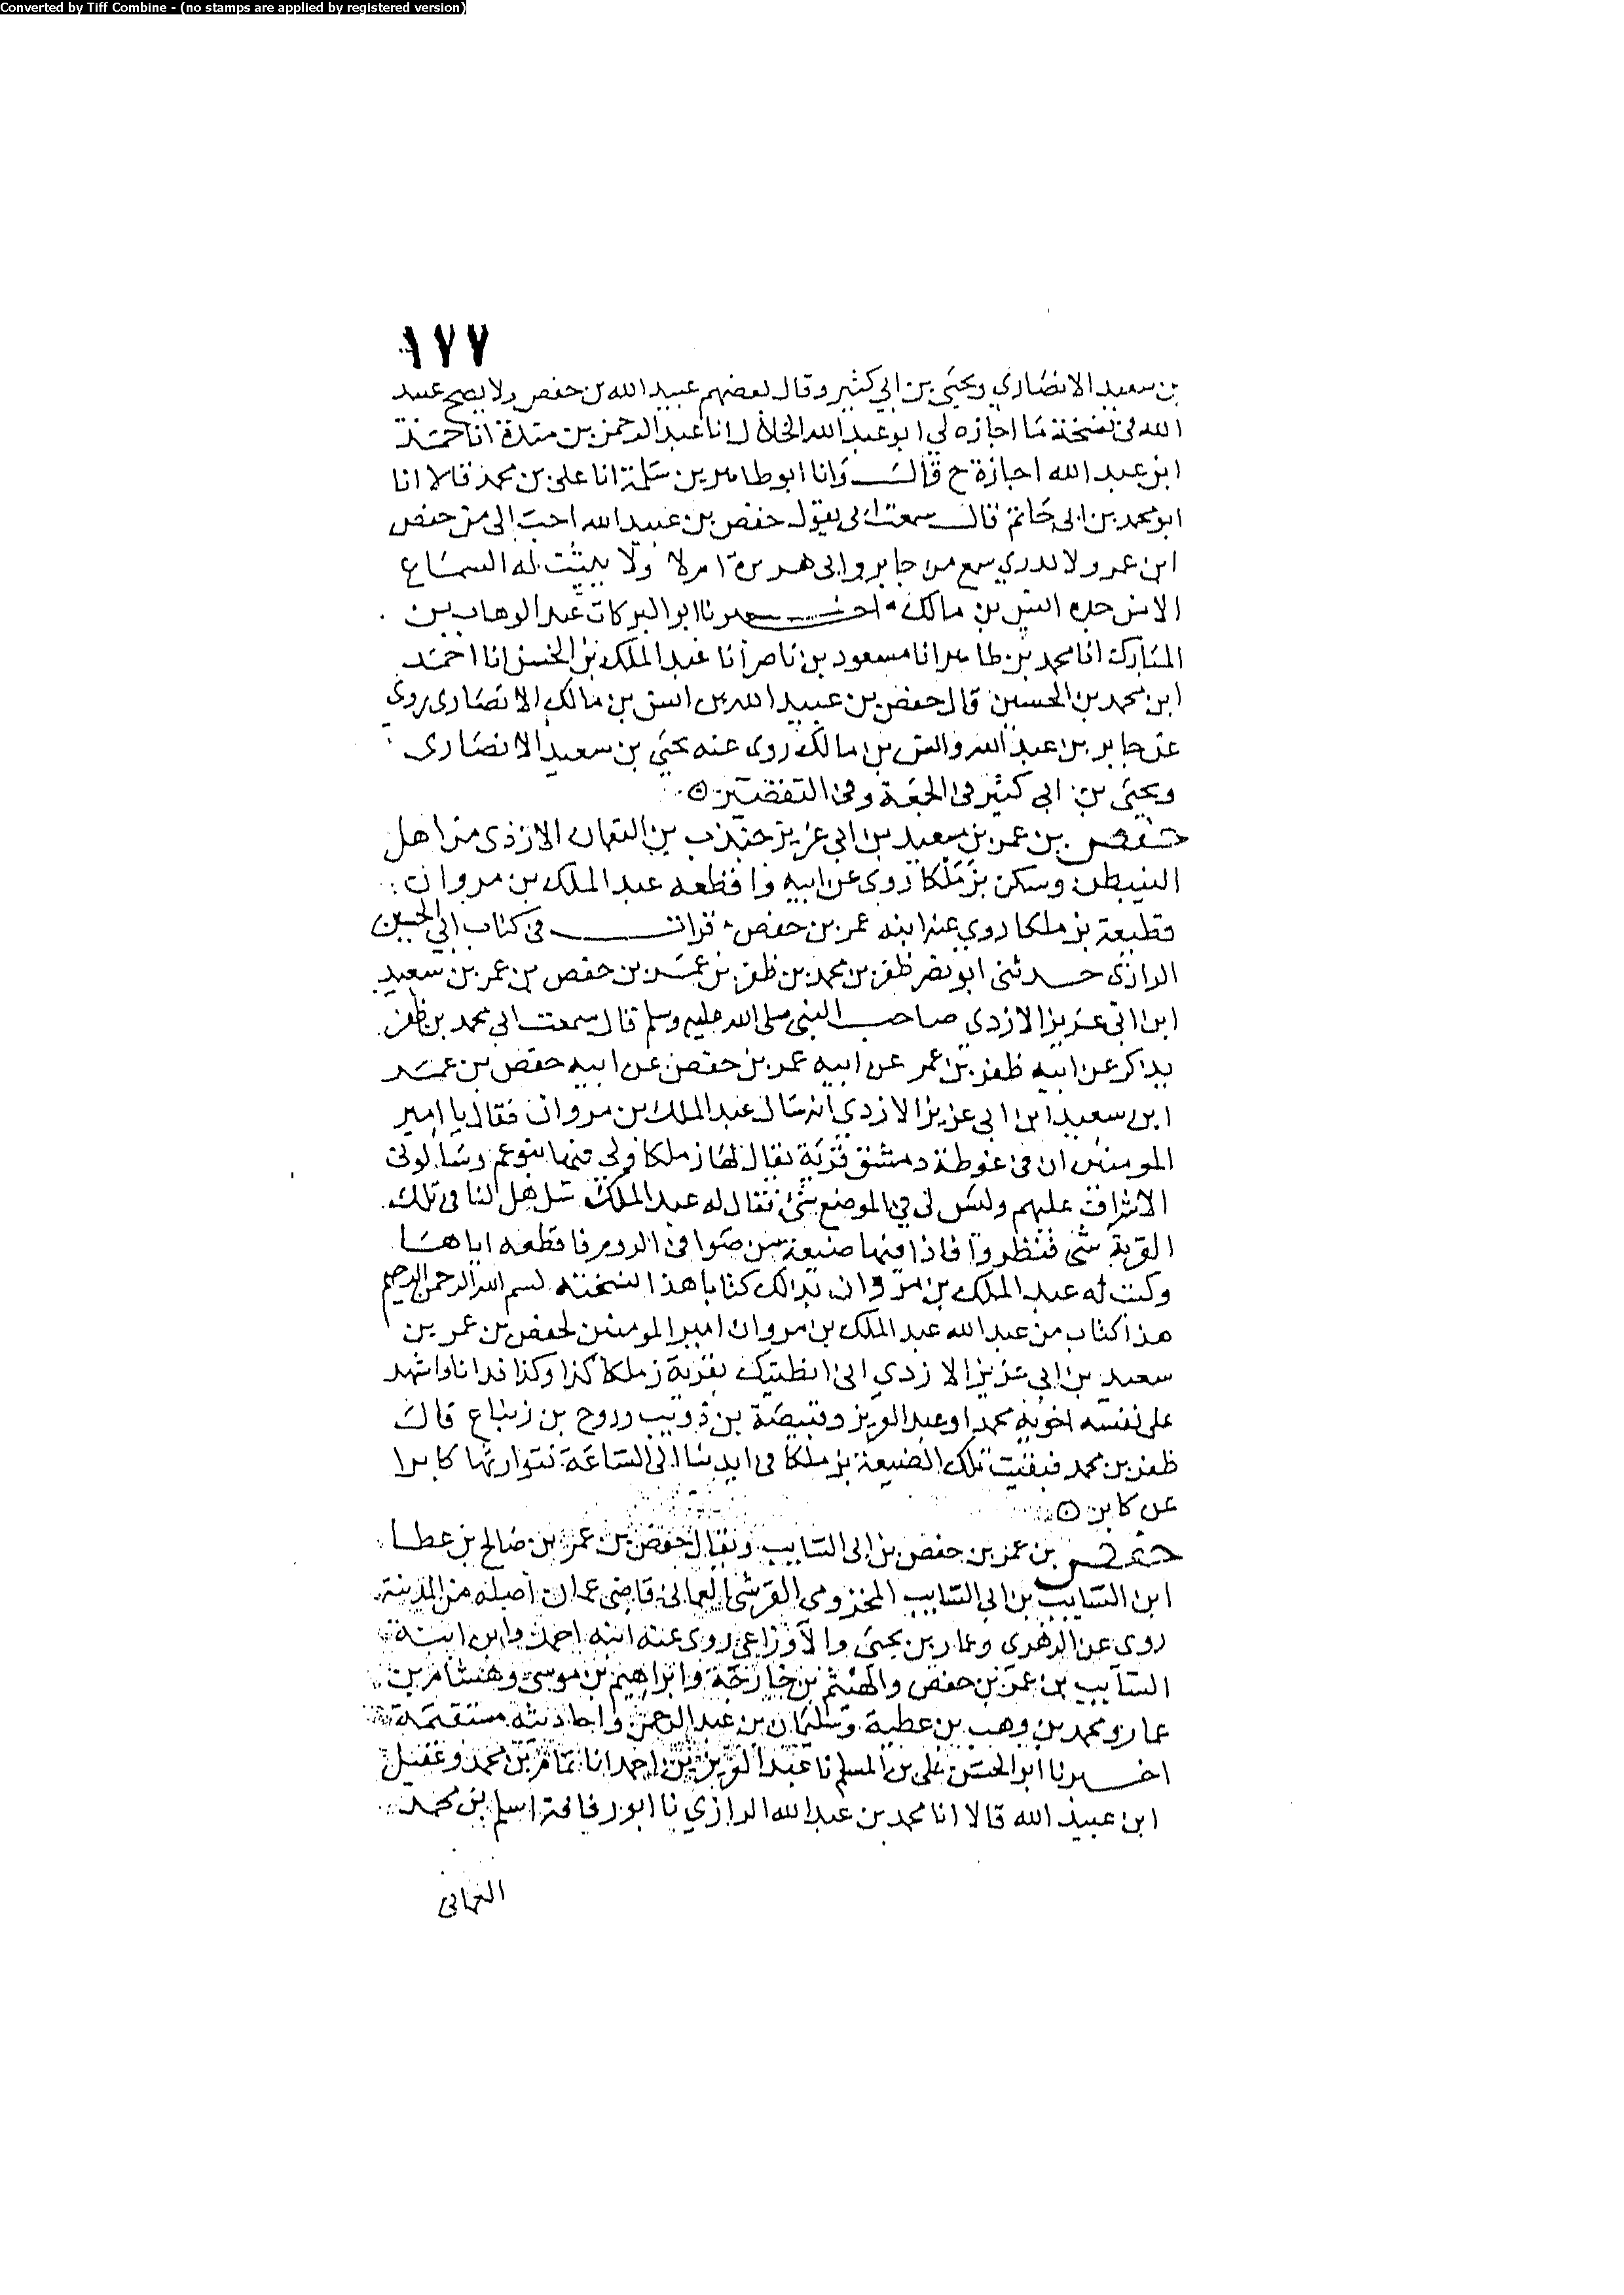 Converted by Tiff Combine - (no stamps are applied by registered version)
١٧٧
بن سعيد الانصاري ويحيى بن ابي كثير وقال بعضهم عبيد الله بن حفص ولا يصح عبيد
الله في نسخة ما اجازه لي ابو عبد الله الخلال انا عبد الرحمن بن مندة انا حمد
ابن عبد الله اجازة ح قال وانا ابو طاهر بن سلمة انا علي بن محمد قالا انا
ابو محمد بن ابي حاتم قال سمعت ابي يقول حفص بن عبيد الله احب الى من حفص
ابن عمر ولا ندري سمع من جابر وابي هريرة ام لا ولا يثبت له السماع
الا من جده انس بن مالك اخبرنا ابو البركات عبد الوهاب بن
المبارك انا محمد بن طاهر انا مسعود بن ناصر انا عبد الملك بن الحسن انا احمد
ابن محمد بن الحسين قال حفص بن عبيد الله بن انس بن مالك الانصاري روى
عن جابر بن عبد الله وانس بن مالك روى عنه يحيى بن سعيد الانصاري
ويحيى بن ابي كثير في الجمعة وفي التقصير
حفص بن عمر بن سعيد بن ابي عزيز جندب بن النعمان الازدي من اهل
النيبطن وسكن بزملكا روى عن ابيه واقطعه عبد الملك بن مروان
قطيعة بزملكا روي عنه ابنه عمر بن حفص قرات في كتاب ابي الحسين
الرازي حدثني ابو نصر ظفر بن محمد بن ظفر بن عمر بن حفص بن عمر بن سعيد
ابن ابي عزيز الازدي صاحب النبي صلى الله عليه وسلم قال سمعت ابي محمد بن ظفر
يذاكر عن ابيه ظفر بن عمر عن ابيه عمر بن حفص عن ابيه حفص بن عمر
ابن سعيد ابن ابي عزيز الازدي انه سال عبد الملك بن مروان فقال يا امير
المومنين ان في غوطة دمشق قرية يقال لها زملكا ولي فيها بنو عم وسالوني
الاشراف عليهم وليس لي في الموضع شئ فقال له عبد الملك سل هل لنا في تلك
القرية شى فنظروا فاذا فيها ضيعة من صوافي الروم فاقطعه اياها
وكتب له عبد الملك بن مروان بذلك كتابا هذا نسخته بسم الله الرحمن الرحيم
هذا كتاب من عبد الله عبد الملك بن مروان امير المومنين لحفص بن عمر بن
سعيد بن ابي عزيز الازدي اني انطيتك بقرية زملكا كذا وكذا فدانا واشهد
على نفسه اخويه محمدا وعبد العزيز وقبيصة بن ذويب وروح بن زنباع قال
ظفر بن محمد فبقيت تلك الضيعة بزملكا في ايدينا الى الساعة نتوارثها كابرا
عن كابر
حفص بن عمر بن حفص بن ابي السايب ويقال حفص بن عمر بن صالح بن عطا
ابن السايب بن ابي السايب المخزومي القرشي العماني قاضي عمان اصله من المدينة
روى عن الزهري وعمار بن يحيى والاوزاعي روى عنه ابنه احمد وابن ابنه
السايب بن عمر بن حفص والهيثم بن خارجة وابراهيم بن موسى وهشام بن
عمار ومحمد بن وهب بن عطية وسليمان بن عبد الرحمن واحاديثه مستقيمة
اخبرنا ابو الحسن علي بن المسلم نا عبد العزيز بن احمد انا تمام بن محمد وعقيل
ابن عبيد الله قالا انا محمد بن عبد الله الرازي نا ابو رفاعة اسلم بن محمد
العماني